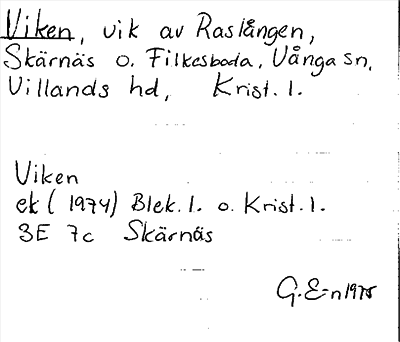 Viken, vik av Raslången,
Skärnäs o. Filkesboda, Vånga sn,
Villands hd, Krist. l.
Viken
ek (1974) Blek. l. o. Krist. l.
3E 7c Skärnäs
G. E-n 1975